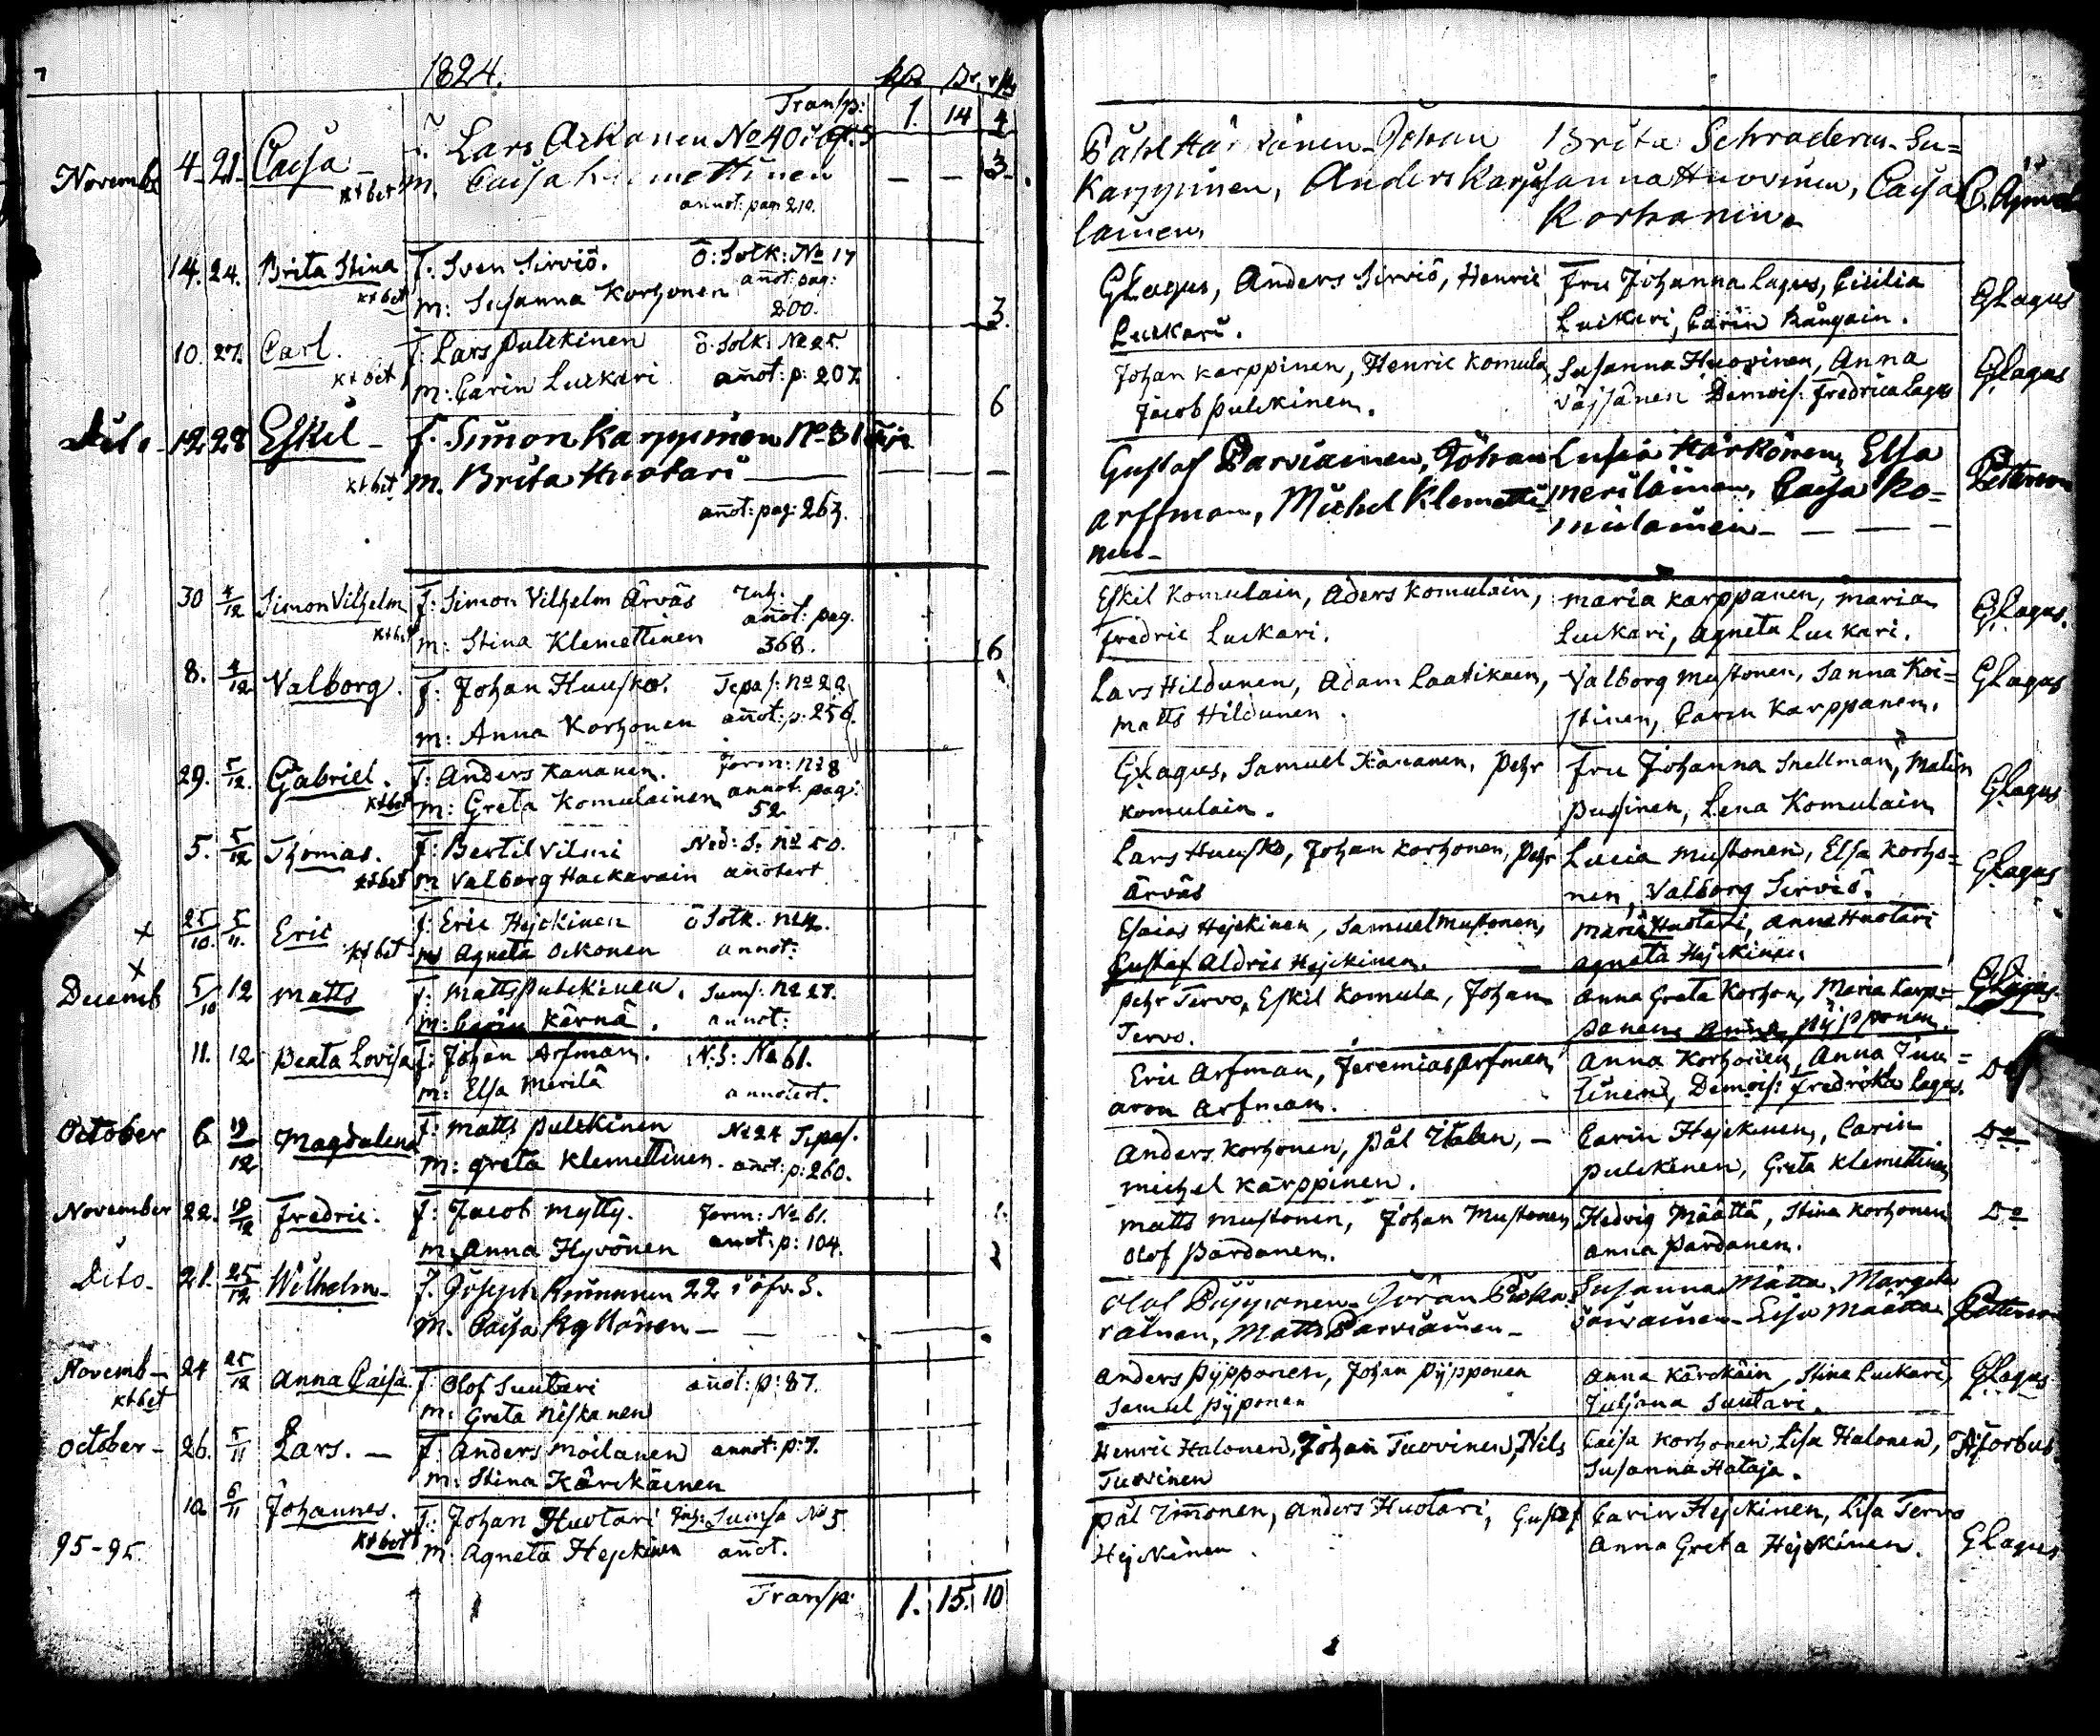 1824.
Transp: 1. 14 4
Novembr 4. 21. Caisa f. Lars Ackonen No 40 i öfv. S
kt bet m. Caisa Klemettinen — — 3.
annot: pag: 210.
Påhl Härkönen. Johan Brita Schroderus. Su=
Karppinen, Anders Karja= sanna Huovinen, Caisa
lainen, Korhonen.
14. 24. Brita Stina f: Sven Sirviö. Ö: Solk: No 17
kt bet m: Susanna Korhonen anot: pag:
200. 3.
GLagus, Anders Sirviö, Henric Fru Johanna Lagus, Cicilia GLagus
Luckari. Luckari, Carin Kångain.
10. 27. Carl. f: Lars Pulckinen Ö: Solk: No 25.
kt bet m: Carin Luckari anot: p: 207.
6
Johan Karppinen, Henric Komula, Susanna Huovinen, Anna GLagus
Jacob Pulckinen. Väjsänen Demois: Fredrica Lagus
Dito. 12 28 Eskil — f. Simon Karppinen No 31
kt bet m. Brita Huotari — —
anot: pag: 263.
Gustaf Parviainen, Johan Lusia Härkönen, Elsa Petterson
Arffman, Michel Klemetti= Meriläinen, Caisa Ko=
nen — mulainen — — —
30 4/12 Simon Vilhelm f: Simon Vilhelm Ärväs Inh.
kt bet anot: pag.
m: Stina Klemettinen 368. 6
Eskil Komulain, Aders Komulain, Maria Karppanen, Maria GLagus.
Fredric Luckari. Luckari, Agneta Luckari.
8. 4/12 Valborg. f: Johan Huusko. Tepas: No 22
m: Anna Korhonen anot: p: 256.
Lars Hildunen, Adam Laatikaen, Valborg Mustonen, Sanna Koi= GLagus
Matts Hildunen. stinen, Carin Karppanen.
29. 5/12. Gabriel. f: Anders Kananen. Jorm: No 8
kt bet m: Greta Komulainen annot: pag:
52
GLagus, Samuel Kananen, Pehr Fru Johanna Snellman, Malin GLagus
Komulain. Pussinen, Lena Komulain
5. 5/12 Thomas. f: Bertil Vilmi Ned: S. No 50.
kt bet m Valborg Hackarain anotert
Lars Huusko, Johan Korhonen, Pehr Lucia Mustonen, Elsa Korho= GLagus
Ärväs nen, Valborg Sirviö.
× 25/10. 5/11. Eric f: Eric Hejckinen Ö Solk.
kt bet m Agneta Ockonen annot:
Esaias Hejckinen, Samuel Mustonen, Maria Huotari, Anna Huotari
Gustaf Aldric Hejckinen. Agneta Hejckinen.
× Decemb 5/10 12 Matts f: Matts Pulckinen. Sums: No 27.
m: Carin Kärnä. annot:
Pehr Tervo, Eskil Komula, Johan Anna Greta Korhon, Maria Karp= GLagus.
Tervo. panen, Anna Pÿpponen.
11. 12 Beata Lovisa f: Johan Arfman. N. S: No 61.
m: Elsa Merilä annotert.
Eric Arfman, Jeremias Arfman Anna Korhonen, Anna Tuu= Do
Aron Arfman. tinen, Demois: Fredrika Lagus.
October 6 19/12 Magdalena f: Matts Pulckinen No 24 Tepas.
m: Greta Klemettinen. anot: p: 260.
Anders Korhonen, Pål Italen, — Carin Hejckinen, Carin Do
Michel Karppinen. Pulckinen, Greta Klemettinen
November 22. 19/12 Fredric. f: Jacob Mytty. Jorm: No 61.
m: Anna Hyvönen anot: p: 104.
Matts Mustonen, Johan Mustonen Hedvig Määttä, Stina Korhonen Do
Olof Pardanen. Anna Pardanen.
Dito. 21. 25/12 Wilhelm — f. Joseph Kinnunen 22 i öfv. S.
m. Caisa Kyllönen — —
Olof Pÿÿponen — Göran Susanna Mätta, Margeta Petterson
Matts Parviainen — Elsa Määtta
Novemb — 24 25/12 Anna Caisa. f. Olof Suutari anot: p: 87.
kt bet m: Greta Niskanen
Anders Pÿpponen, Johan Pÿpponen Anna Kärckäin, Stina Luckari, GLagus
Samuel Pÿponen Juljana Suutari.
October — 26. 5/11 Lars. — f: Anders Moilanen annot: p: 7.
m: Stina Kärckäenen
Henric Halonen, Johan Tuovinen, Nils Caisa Korhonen, Lisa Halonen,
Tuovinen Susanna Hataja.
10. 6/11 Johannes. f: Johan Huotari Inh: Sumsa No 5
kt bet m: Agneta Hejckinen anot.
95-95.
Pål Timonen, Anders Huotari, Gustaf Carin Hejckinen, Lisa Tervo GLagus
Hejckinen. Anna Greta Hejckinen.
Transp: 1. 15. 10